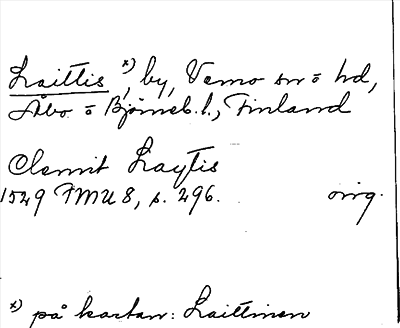 Laittis *), by, Vemo sn o hd,
Åbo o Björneb. l., Finland
Clemit Laytis
1549 FMU 8, s. 296. orig.
*) på kartan: Laittinen